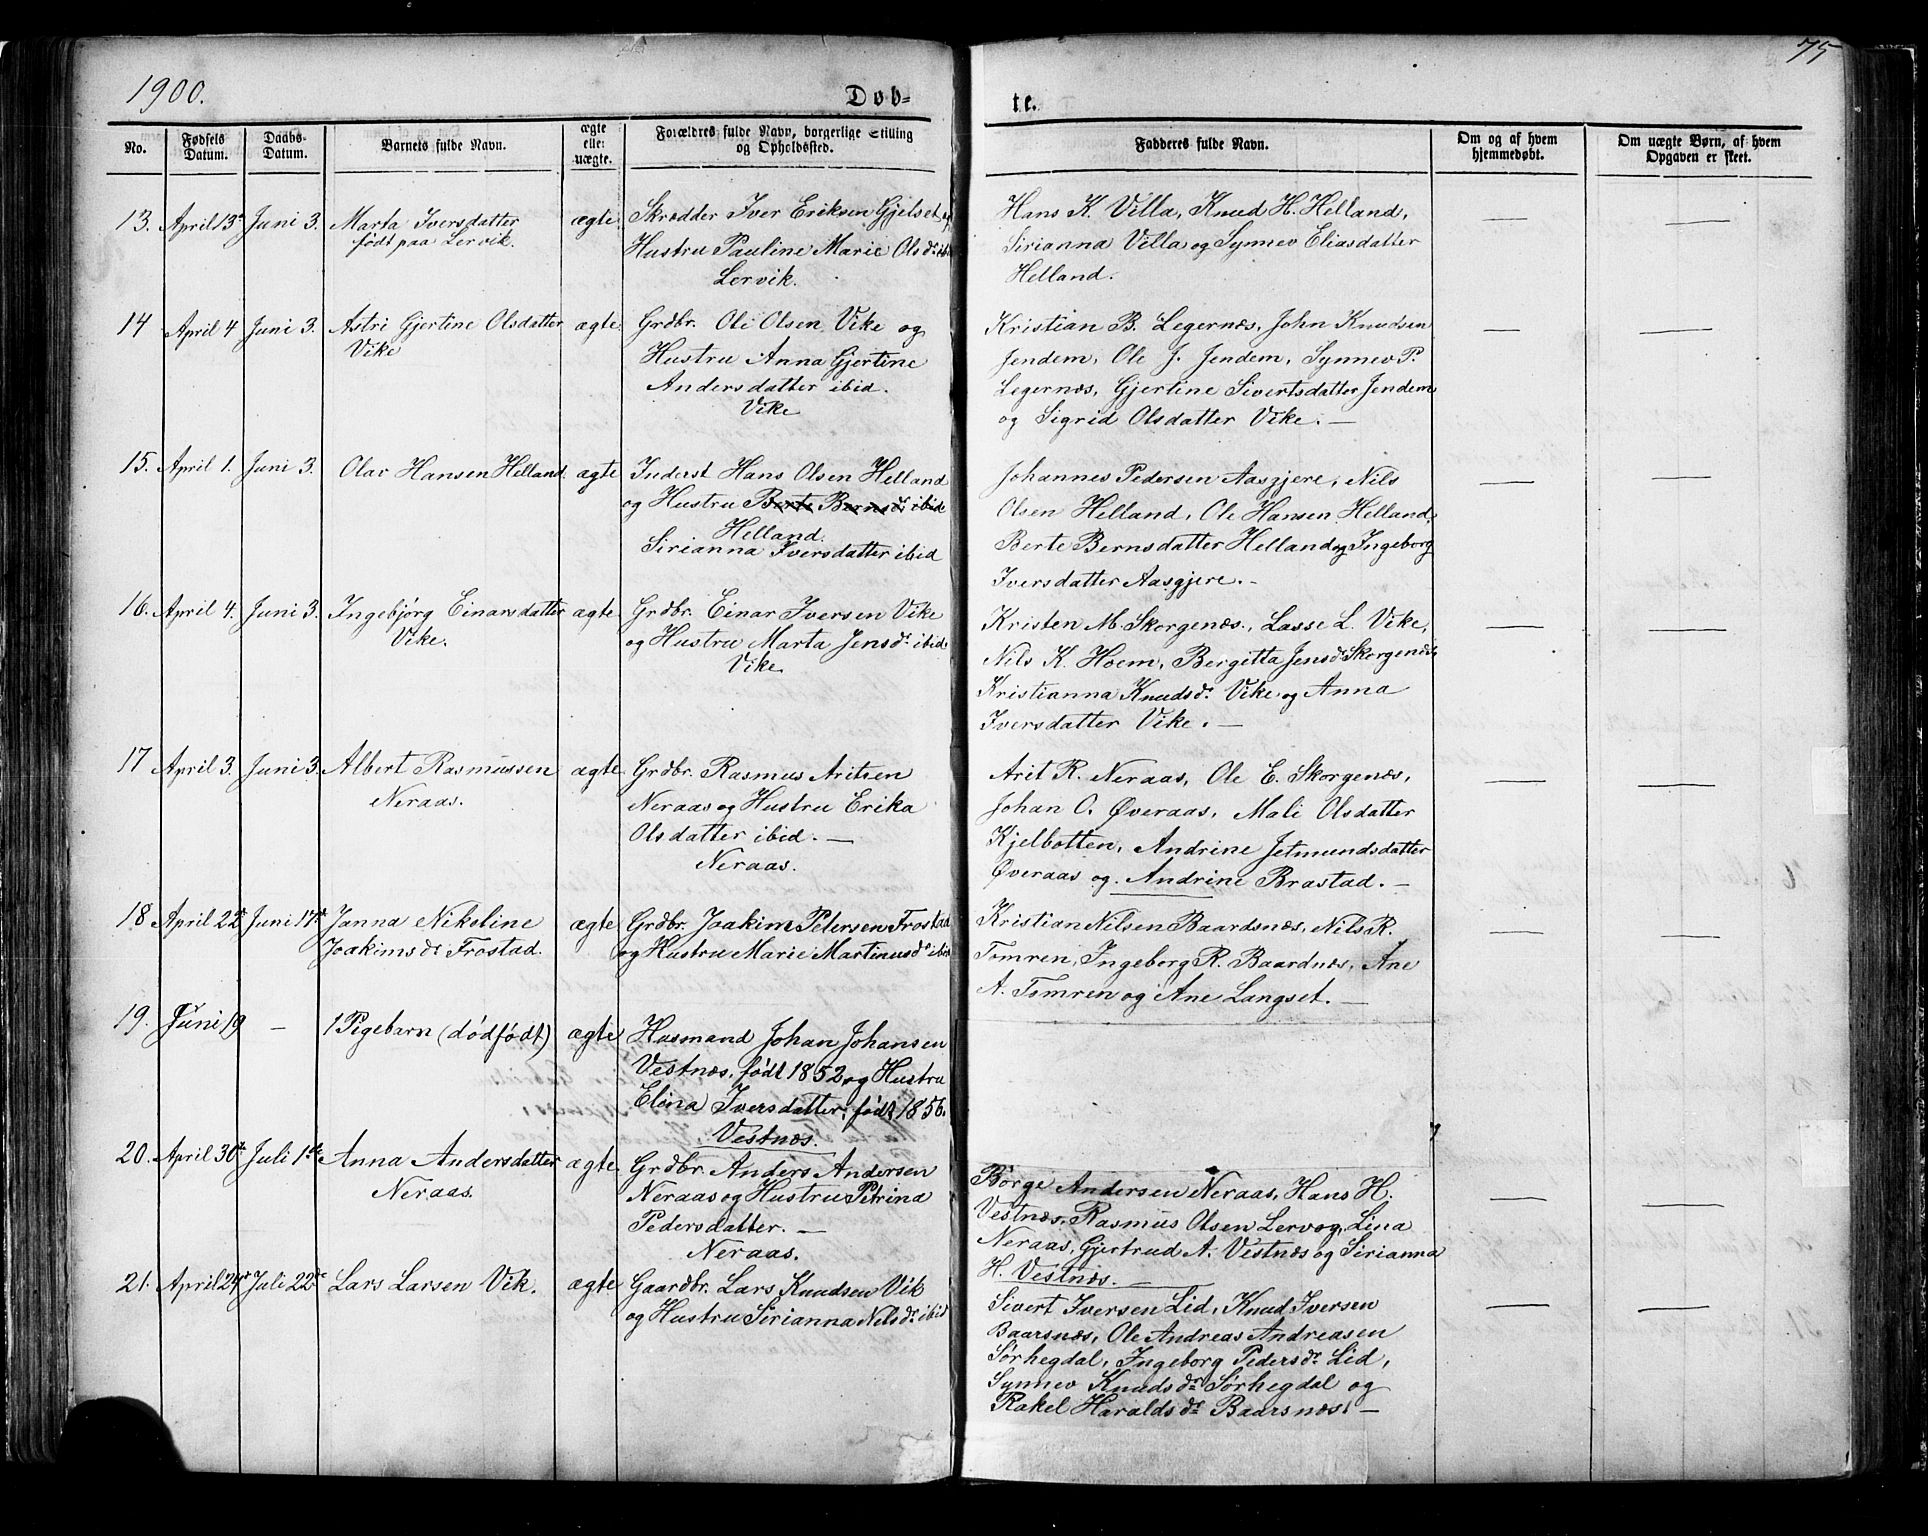 1900.
Døb=
te.
75
No.
Fødsels Datum.
Daabs- Datum.
Barnets fulde Navn.
ægte eller uægte.
Forældres fulde Navn, borgerlige Stilling og Opholdssted.
Fadderes fulde Navn.
Om og af hvem hjemmedøbt.
Om uægte Børn, af hvem Opgaven er skeet.
13. April 13de Juni 3. Marta Iversdatter ægte. Skrædder Iver Eriksen Gjelset og
født paa Lervik. Hustru Pauline Marie Olsdr ibid
Lervik.
Hans K. Villa, Knud H. Helland,
Sirianna Villa og Synnev Eliasdatter
Helland.
14 April 4 Juni 3. Astri Gjertine Olsdatter ægte. Grdbr. Ole Olsen Vike og
Vike Hustru Anna Gjertine
Andersdatter ibid.
Vike
Kristian B. Legernæs, John Knudsen
Jendem, Ole J. Jendem, Synnev P.
Legernæs, Gjertine Sivertsdatter Jendem
og Sigrid Olsdatter Vike. —
15. April 1. Juni 3. Olav Hansen Helland ægte Inderst Hans Olsen Helland
og Hustru Berte Bernsdr ibid
Helland.
Sirianna Iversdatter ibid
Johannes Pedersen Aasgjere, Nils
Olsen Helland, Ole Hansen Helland,
Berte Bernsdatter Helland og Ingeborg
Iversdatter Aasgjere. -
16. April 4. Juni 3. Ingebjørg Einarsdatter ægte Grdbr. Einar Iversen Vike
Vike. og Hustru Marta Jensdr ibid
Vike
Kristen M. Skorgenæs, Lasse L. Vike,
Nils K. Hoem, Bergitta Jensdr Skorgenæs,
Kristianna Knudsdr Vike og Anna
Iversdatter Vike. —
17 April 3. Juni 3. Albert Rasmussen ægte. Grdbr. Rasmus Aritsen
Neraas. Neraas og Hustru Erika
Olsdatter ibid. —
Neraas.
Arit R. Neraas, Ole E. Skorgenæs,
Johan O. Øveraas, Mali Olsdatter
Kjelbotten, Andrine Jetmundsdatter
Øveraas og Andrine Brastad. —
18 April 22de Juni 17de Janna Nikoline ægte Grdbr. Joakim Petersen Frostad
Joakimsdr Frostad. og Hustru Marie Martinusdr ibid
Kristian Nilsen Baardsnæs, Nils R.
Tomren, Ingeborg R. Baardnæs, Ane
A. Tomren og Ane Langset. —
19. Juni 19 — 1 Pigebarn (dødfødt) ægte Husmand Johan Johansen
Vestnæs, født 1852 og Hustru
Elena Iversdatter, født 1856.
Vestnæs.
20. April 30te Juli 1ste Anna Andersdatter ægte. Grdbr. Anders Andersen
Neraas. Neraas og Hustru Petrina
Pedersdatter. —
Neraas.
Børge Andersen Neraas, Hans H.
Vestnæs, Rasmus Olsen Lervog, Lina
Neraas, Gjertrud A. Vestnæs og Sirianna
H. Vestnæs. —
21. April 24de Juli 22de Lars Larsen Vik. ægte Gaardbr. Lars Knudsen Vik
og Hustru Sirianna Nilsdr ibid
Sivert Iversen Lid, Knud Iversen
Baarsnæs, Ole Andreas Andreasen
Sørhegdal, Ingeborg Pedersdr Lid,
Synnev Knudsdr Sørhegdal og
Rakel Haraldsdr Baarsnæs. —